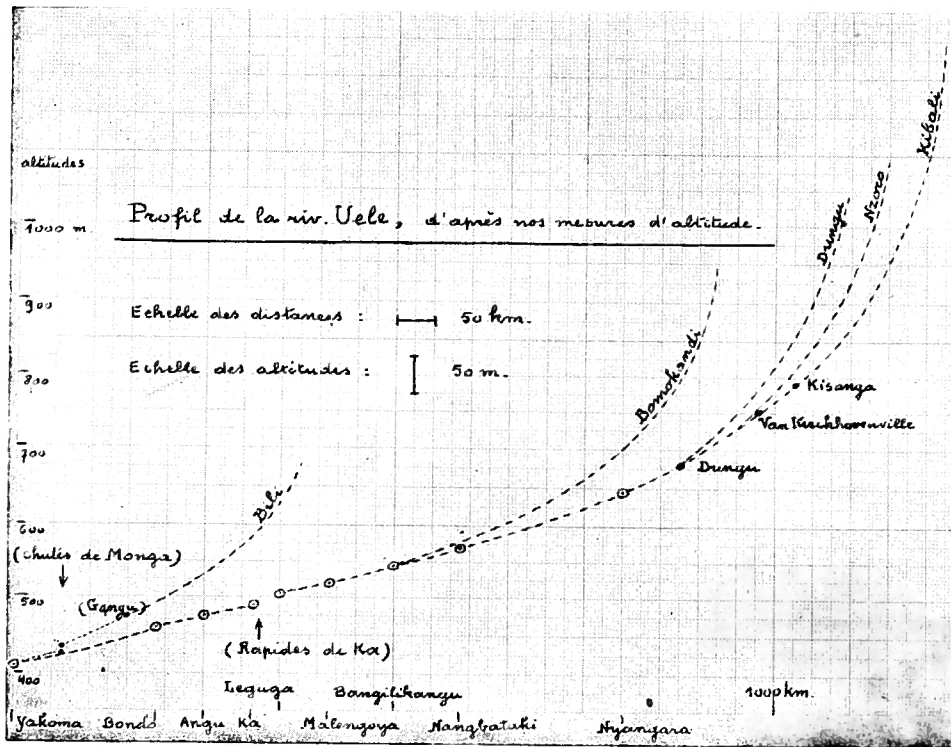 altitudes
1000 m.
Profil de la riv. Uele, d'après nos mesures d'altitude.
900
Echelle des distances : 50 km.
800
Echelle des altitudes : 50 m.
700
600
500
400
Bili
Bomokandi
Dungu
Nzoro
Kibali
Kisanga
Van Kerkhovenville
Dungu
(Chutes de Monga)
(Gangu)
(Rapides de Ka)
Leguga Bangilikangu 1000 km.
Yakoma Bondo Angu Ka Malengoya Nangbataki Nyangara